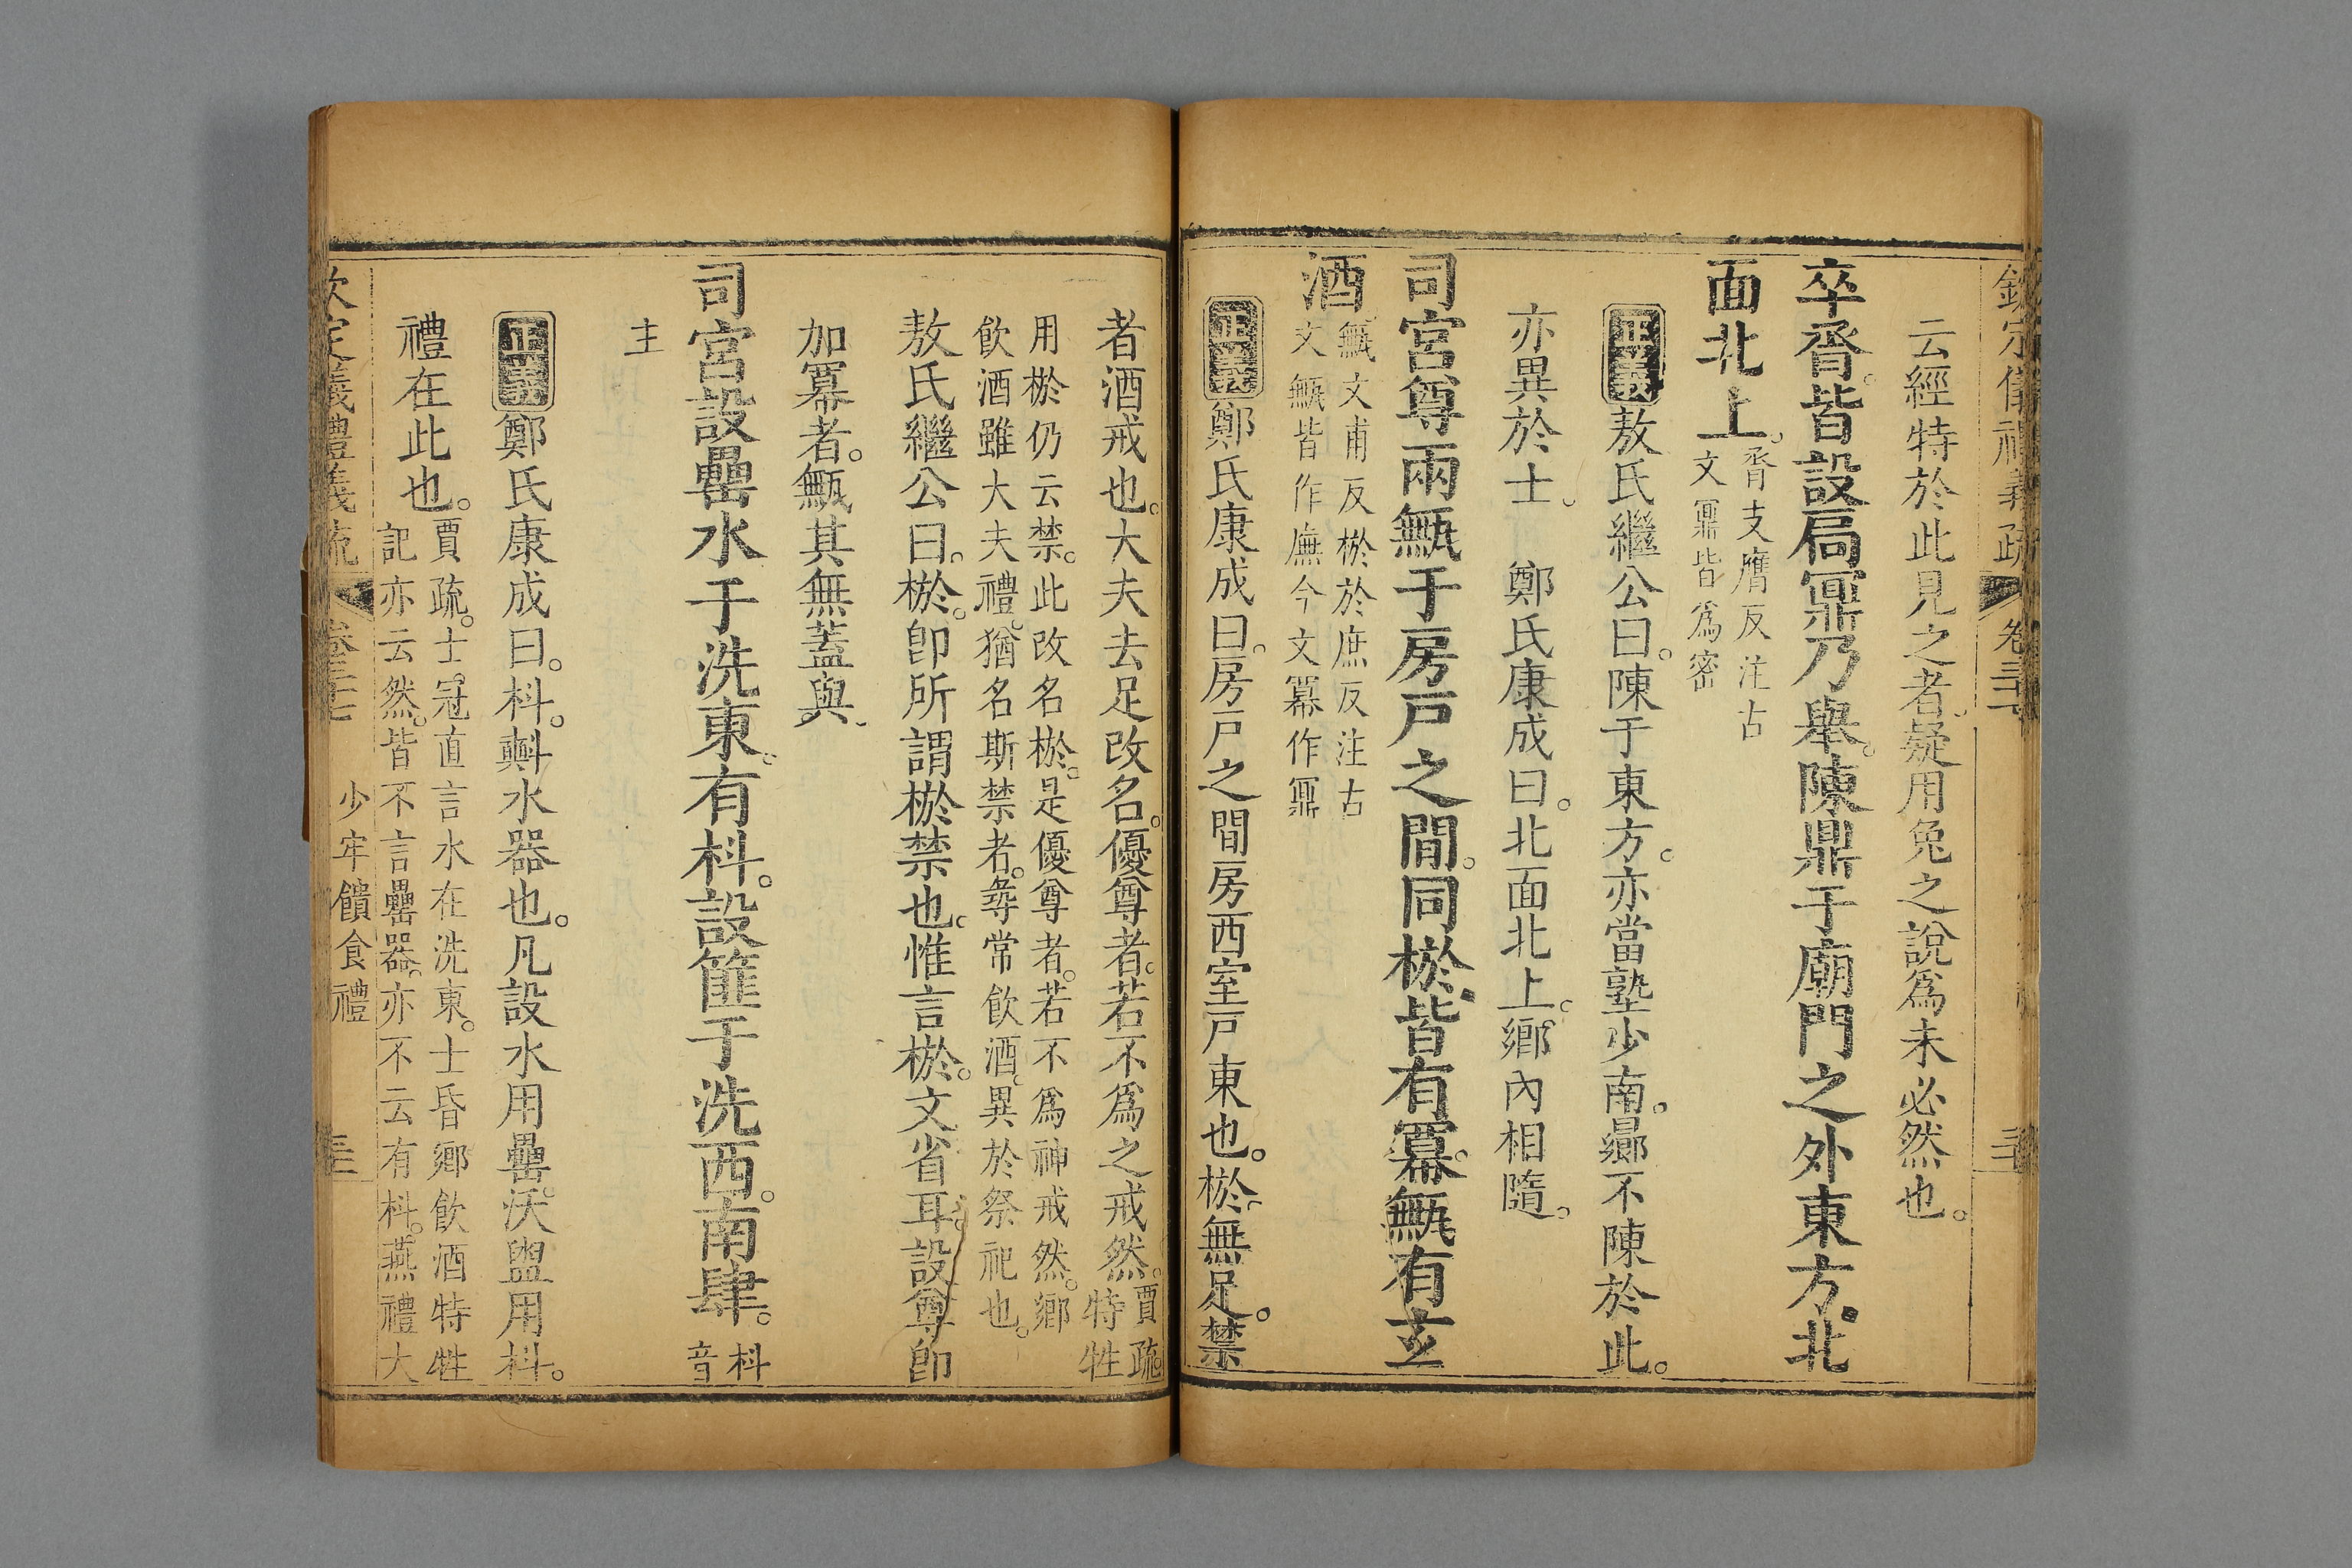 欽定儀禮義疏 卷三十七
云經特於此見之者疑用兔之說爲未必然也
卒脀皆設扃鼏乃舉陳鼎于廟門之外東方北
面北上
脀支膺反注古
文鼏皆爲密
正義 敖氏繼公曰陳于東方亦當塾少南曏不陳於此
亦異於士 鄭氏康成曰北面北上鄉內相隨
司宮尊兩甒于房戶之間同棜皆有冪甒有玄
酒
甒文甫反棜於庶反注古
文甒皆作廡今文冪作鼏
正義 鄭氏康成曰房戶之間房西室戶東也棜無足禁
者酒戒也大夫去足改名優尊者若不爲之戒然
賈疏特牲
用棜仍云禁此改名棜是優尊者若不爲神戒然鄉
飲酒雖大夫禮猶名斯禁者尋常飲酒異於祭祀也
敖氏繼公曰棜卽所謂棜禁也惟言棜文省耳設尊卽
加冪者甒其無蓋與
司宮設罍水于洗東有枓設篚于洗西南肆
枓音
主
正義 鄭氏康成曰枓㪺水器也凡設水用罍沃盥用枓
禮在此也
賈疏士冠直言水在洗東士昏鄉飲酒特牲
記亦云然皆不言罍器亦不云有枓燕禮大
欽定儀禮義疏 卷三十七 少牢饋食禮